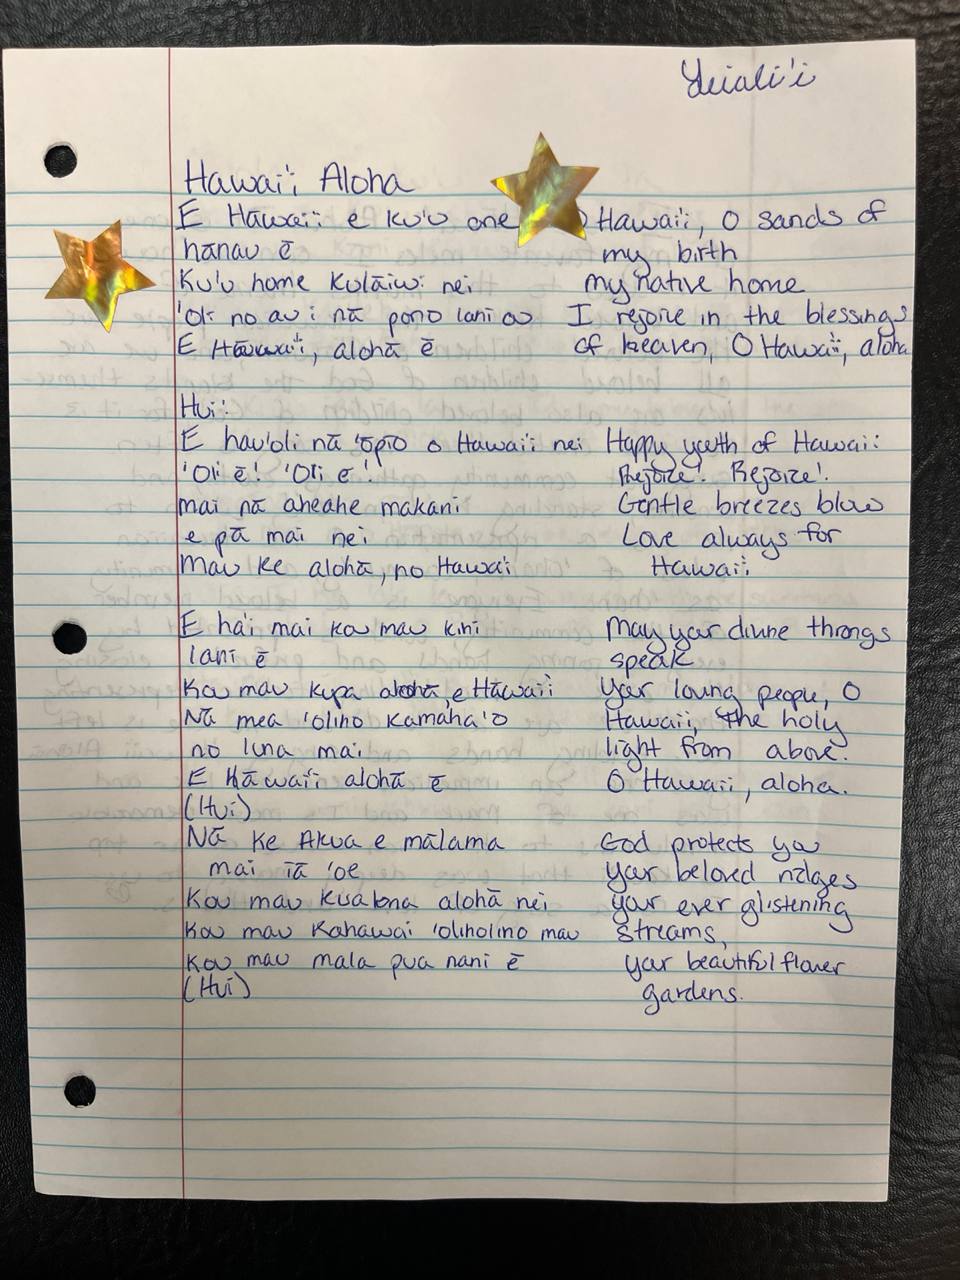 Hawai'i Aloha
E Hāwai'i e ku'u one O Hawai'i, O sands of
hānau ē my birth
Ku'u home Kulāiwi nei my native home
'Oli no au i nā pono lani ou I rejoice in the blessings
E Hāwai'i, alohā ē of heaven, O Hawai'i, aloha
Hui:
E hau'oli nā 'ōpio o Hawai'i nei Happy youth of Hawai'i
'Oli ē! 'Oli ē! Rejoice! Rejoice!
mai nā aheahe makani Gentle breezes blow
e pā mai nei Love always for
Mau ke alohā, no Hawai'i Hawai'i
E ha'i mai kou mau kini May your divine throngs
lani ē speak
Kou mau kupa alohā, e Hāwai'i Your loving people, O
Nā mea 'ōlino kamaha'o Hawai'i, the holy
no luna mai light from above.
E Hāwai'i alohā ē O Hawai'i, aloha.
(Hui)
Nā ke Akua e mālama God protects you
mai iā 'oe your beloved ridges
Kou mau kualona alohā nei your ever glistening
Kou mau Kahawai 'olinolino mau streams,
Kou mau mala pua nani ē your beautiful flower
(Hui) gardens.